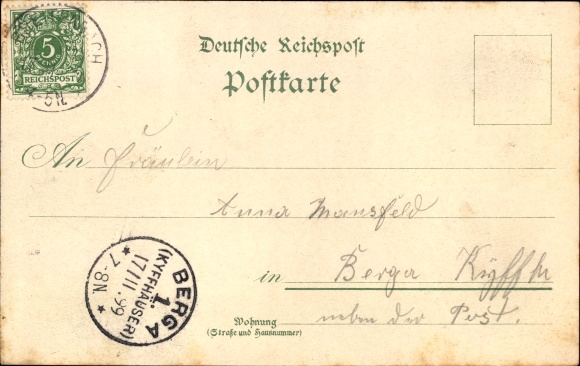 5
REICHSPOST
5N
Deutsche Reichspost
Postkarte
An Fräulein
Anna Mansfeld
in Berga Kyffh
neben der Post.
Wohnung
(Straße und Hausnummer)
BERGA
(KYFFHÄUSER)
1.
17/11.99
* 7-8N *